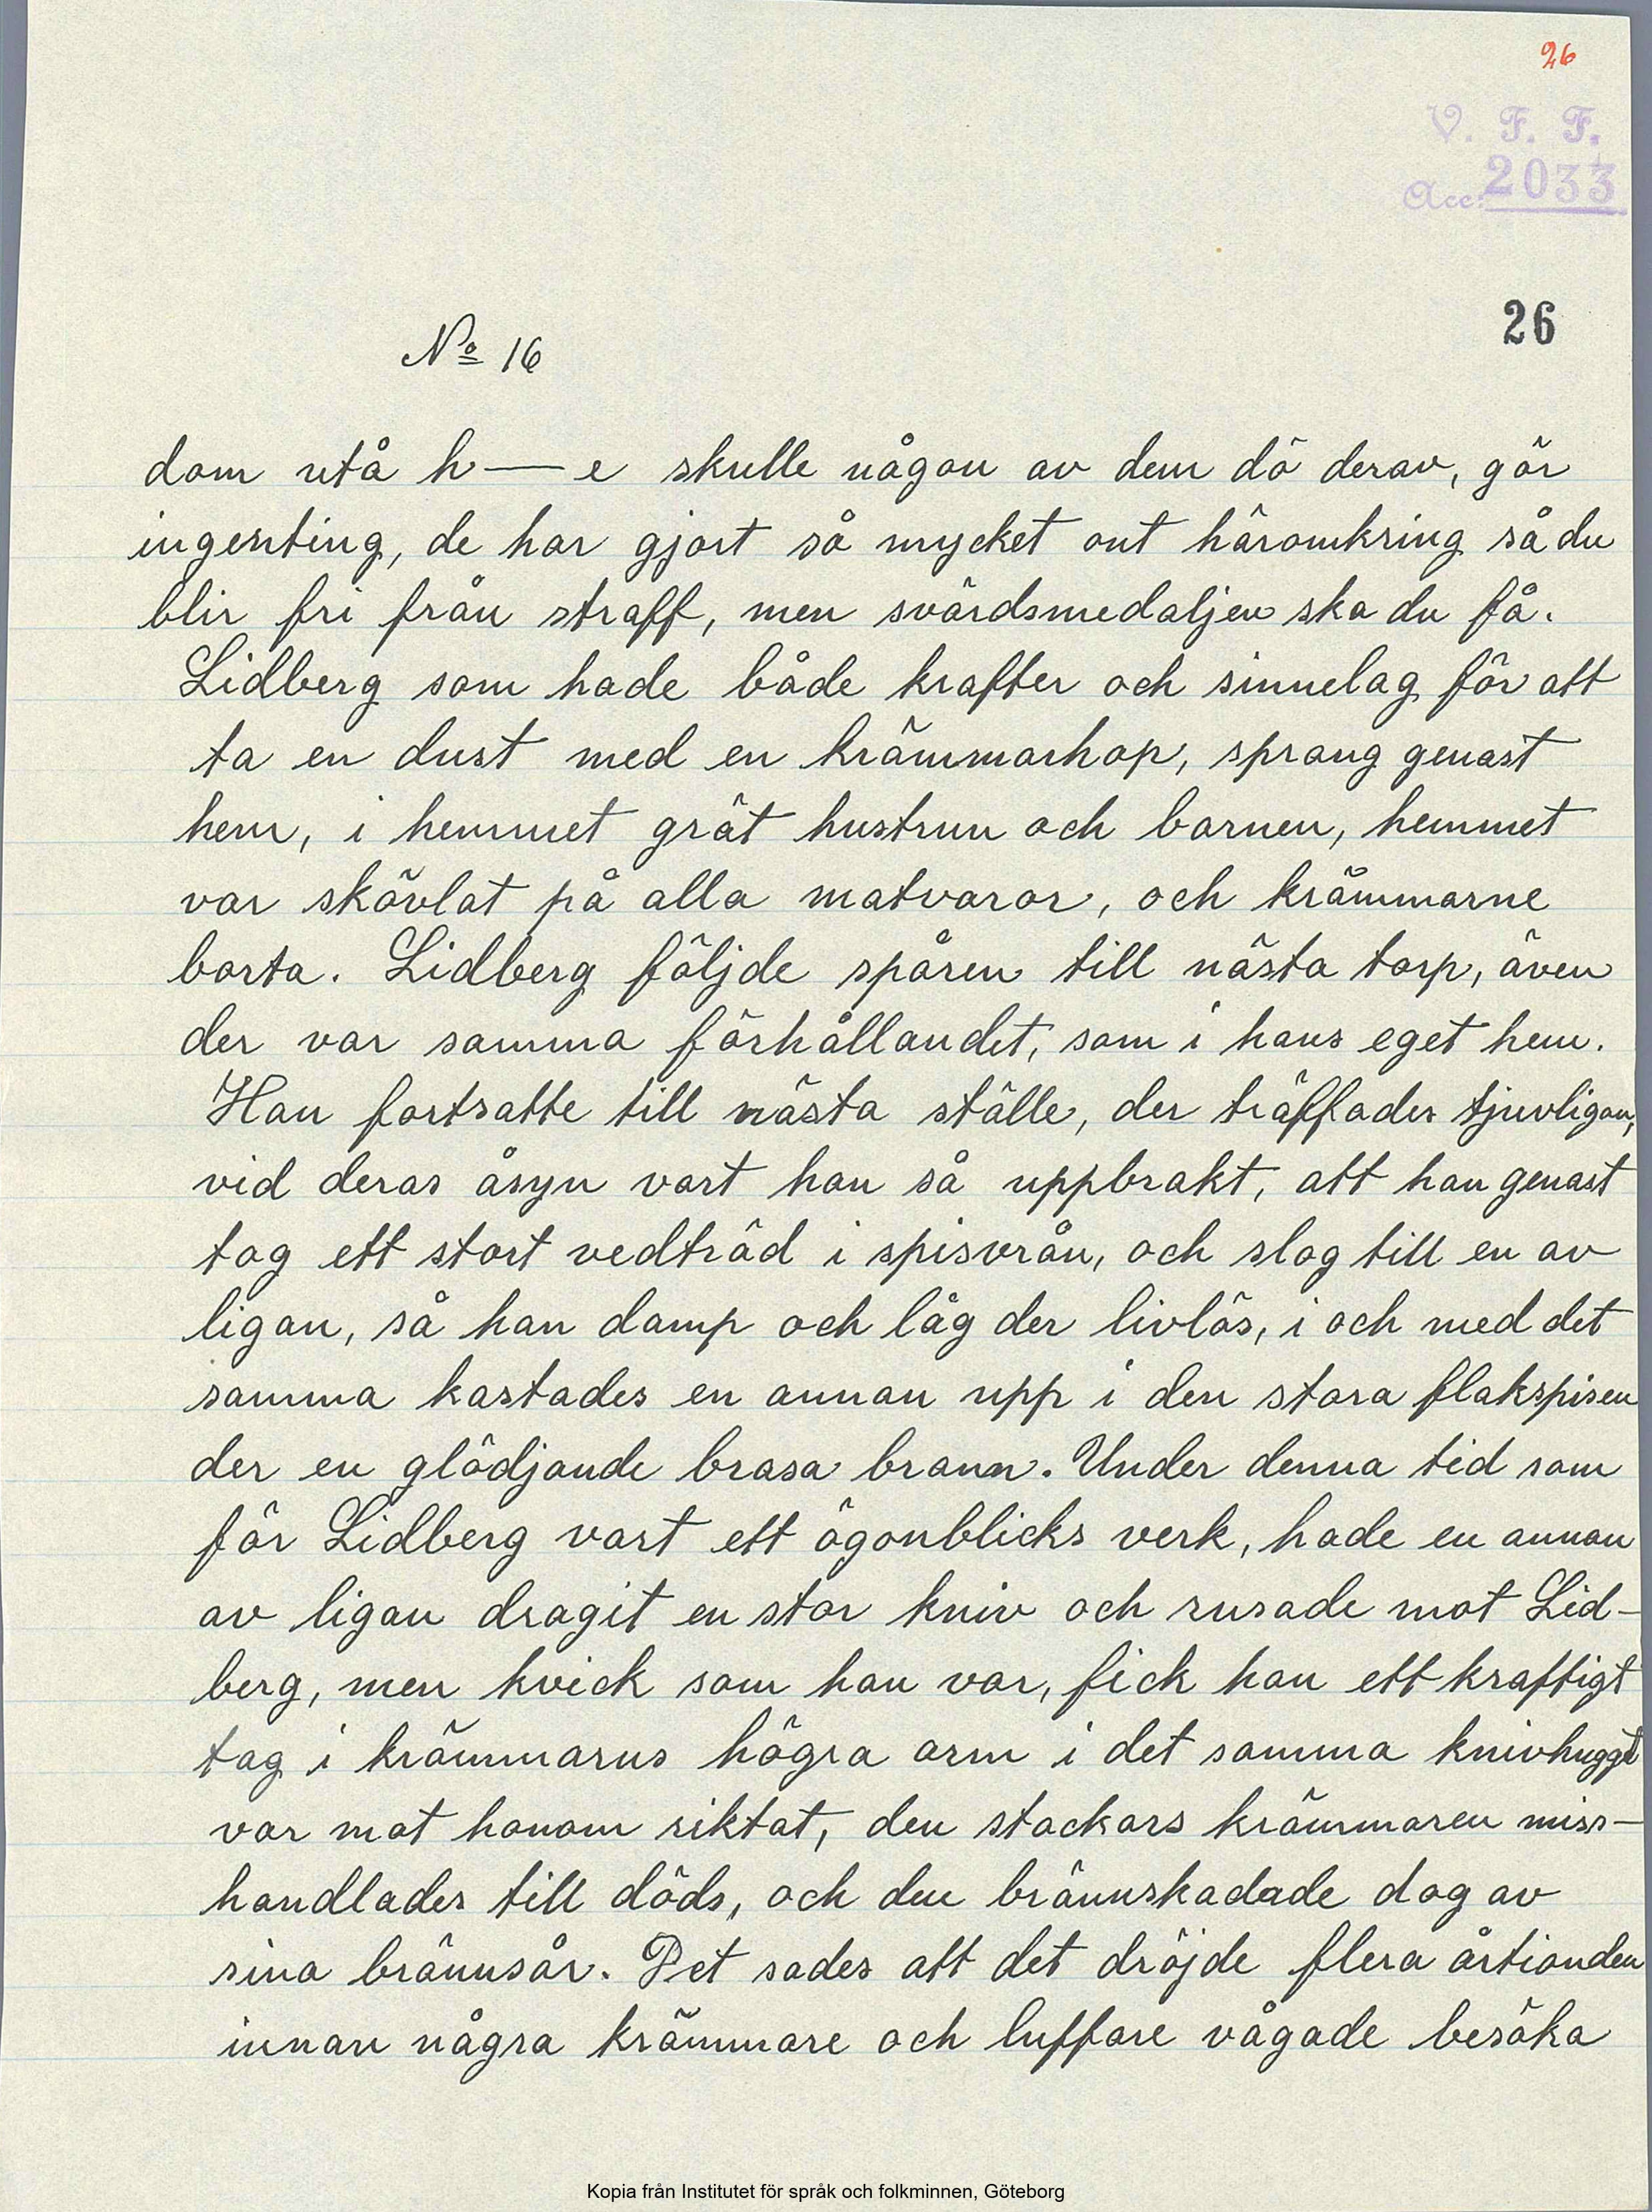 26
V. F. F.
Acc: 2033
26
No 16
dom utå h——e skulle någon av dem dö derav, gör
ingenting, de har gjort så mycket ont häromkring så du
blir fri från straff, men svärdsmedaljen ska du få.
Lidberg som hade både krafter och sinnelag för att
ta en dust med en krämmarhop, sprang genast
hem, i hemmet grät hustrun och barnen, hemmet
var skövlat på alla matvaror, och krämmarne
borta. Lidberg följde spåren till nästa torp, även
der var samma förhållandet, som i hans eget hem.
Han fortsatte till nästa ställe, der träffades tjuvligan,
vid deras åsyn vart han så uppbrakt, att han genast
tog ett stort vedträd i spisvrån, och slog till en av
ligan, så han damp och låg der livlös, i och med det
samma kastades en annan upp i den stora flakspisen
der en glödjande brasa brann. Under denna tid som
för Lidberg vart ett ögonblicks verk, hade en annan
av ligan dragit en stor kniv och rusade mot Lid-
berg, men kvick som han var, fick han ett kraftigt
tag i krämmarns högra arm i det samma knivhugget
var mot honom riktat, den stackars krämmaren miss-
handlades till döds, och den brännskadade dog av
sina brännsår. Det sades att det dröjde flera årtionden
innan några krämmare och luffare vågade besöka
Kopia från Institutet för språk och folkminnen, Göteborg